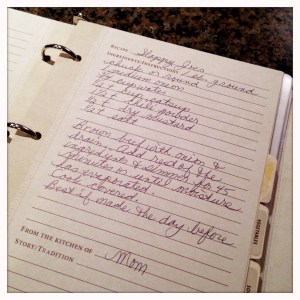 RECIPE Sloppy Joes
INGREDIENTS/INSTRUCTIONS 1 lb. ground
chuck or round
medium onion
cup water
cup catsup
t chili powder
t dry mustard
t salt
Brown beef with onion &
drain. Add rest of the
ingredients & simmer for 45
minutes or until moisture
has evaporated.
Cook covered.
Best if made the day before
FROM THE KITCHEN OF
STORY/TRADITION Mom
VEGETABLES